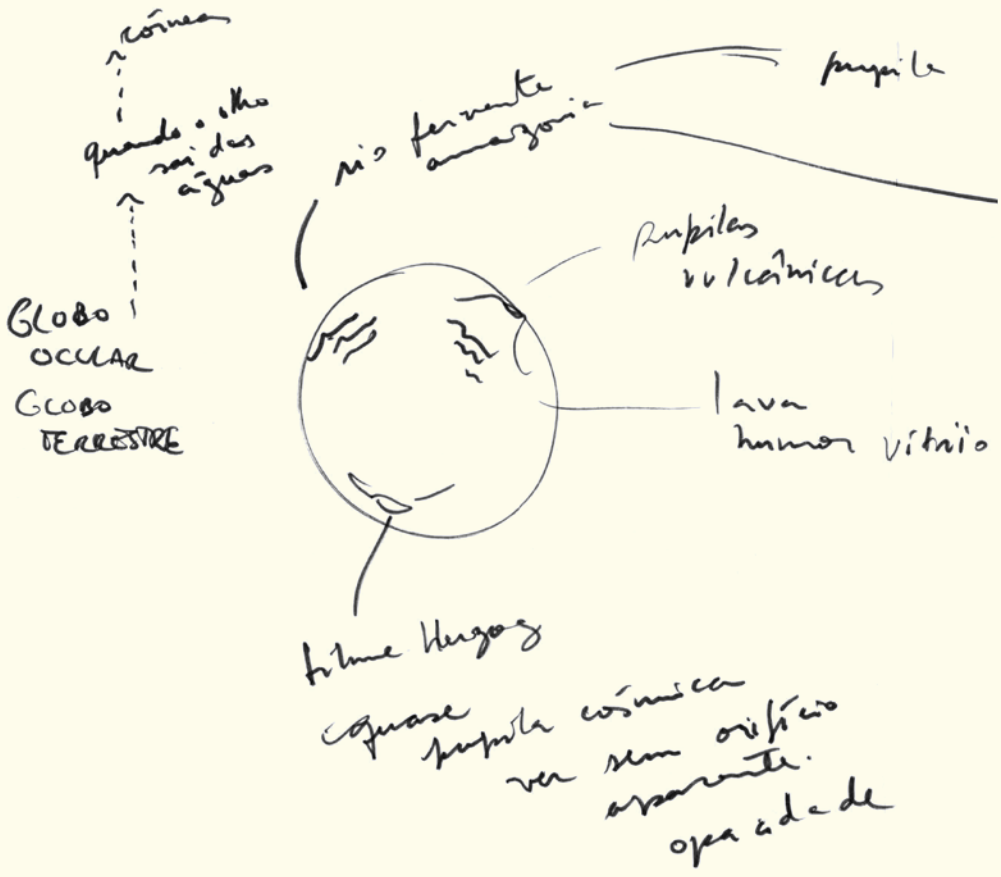 córnea
quando o olho
sai das
águas
GLOBO
OCULAR
GLOBO
TERRESTRE
rio fervente
amazonia
pupila
pupilas
vulcânicas
lava
humor vítrio
filme Herzog
quase
pupila cósmica
ver sem orifício
aparente.
opacidade